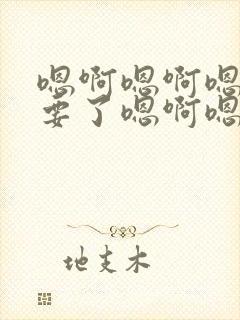 嗯啊嗯啊嗯
要了嗯啊嗯
地支木